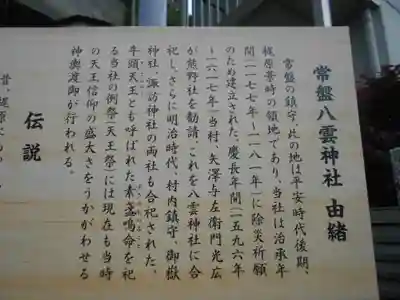 常盤八雲神社 由緒
常盤の鎮守、此の地は平安時代後期、
梶原景時の領地であり、当社は治承年
間(一一七七年〜一一八一年)に除災祈願
のため建立された。慶長年間(一五九六年
〜一六一七年)当村、矢澤与左衛門光広
が熊野社を勧請、これを八雲神社に合
祀し、さらに明治時代、村内鎮守、御嶽
神社、諏訪神社の両社も合祀された。
牛頭天王とも呼ばれた素盞鳴命を祀
る当社の例祭(天王祭)には現在も当時
の天王信仰の盛大さをうかがわせる
神輿渡御が行われる。
伝説
昔、梶原